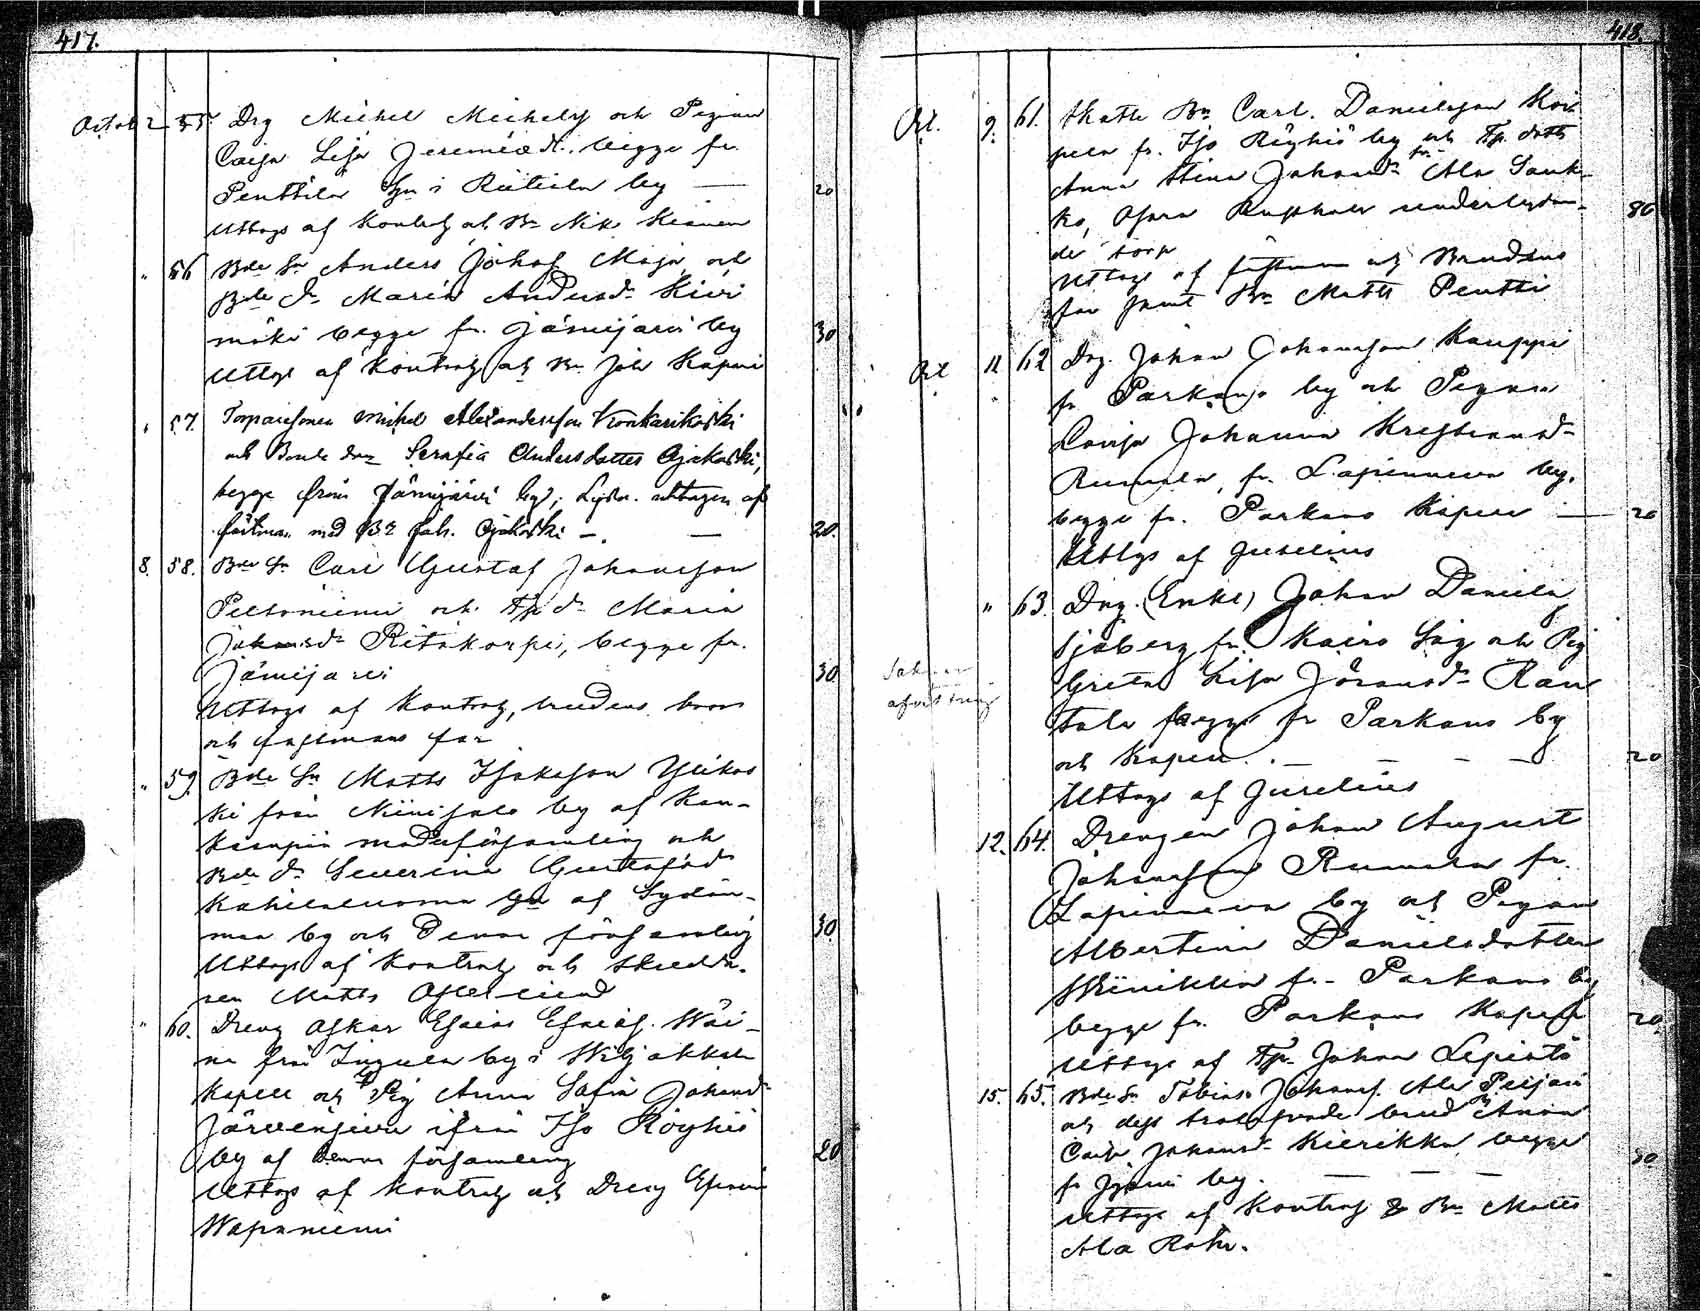 417.
Octob 2 55. Drg Michel Michelss och Pigan
Caisa Lisa Jeremiæ dr. begge fr.
Penttilä Gn i Riitiala by — 20
Uttogs af Kontrah och Bn Nik
" 56 Bde Sn Anders Johas Maja och
Bde dr Maria Andersdr Kivi
mäki begge fr. Jämijärvi by 30
Uttogs af Kontrah och Bn Joh
" 57. Torparesonen Michel Alexandersson Kontarikoski
och Bonde Serafia Andersdotter Ojakoski,
begge från Jämijärvi by; Lysn. uttagen af
fästman med Bn Joh. Ojakoski — . — 20.
8. 58. Bde Sn Carl Gustaf Johansson
Peltoniemi och Tp dr Maria
Johansdr Ritakorpi, begge fr.
Jämijärvi 30
Uttogs af Kontrah, brudens bror
och fästmans far
" 59. Bde Sn Matts Isaksson Ylikos
ki från Niinisalo by af Kan-
kaanpää moderförsamling och
Bde dr Severina Gustafsdr
Kahilaluoma Gn af Sydän-
maa by och Denna församling 30
Uttogs af Kontrah och Skredda-
ren Matts
" 60. Dreng Oskar Esaias Esaiæs. Wäi-
nä från Ingula by i Wiljakkala
Kapell och Pig Anna Sofia Johansdr
Järvensivu ifrån Iso Röyhiö
by af Denna församling 20
Uttogs af Kontrah och Dreng Efraim
Wapaniemi
418.
Oct. 9. 61. Skatte Bn Carl Danielsson Kor
pela fr. Iso Röyhiö by och Tp. dottr
Anna Stina Johansdr fr. Ala Sauk-
ko, Rusthåll underlydan- 80
de torp
Uttogs af fästman och Brudens
far samt Bn Matts Pentti
Oct 11 62 Drg. Johan Johansson Kauppi
fr Parkano by och Pigan
Lovisa Johanna Kristiansdr
Rumala, fr. Lapinneva by.
begge fr. Parkano Kapell — 20
Uttogs af Juselius
" 63. Drg. (Enkl) Johan Daniels
Sjöberg fr. Kairo Såg och Pig
Greta Lisa Göransdr Ran
tala begge fr Parkano by
och Kapell. — — — — 20
Uttogs af Juselius
12. 64. Drengen Johan August
Johansson Rumala fr.
Lapinneva by och Pigan
Albertina Danielsdotter
Wiinikka fr. Parkano by
begge fr. Parkano Kapell 20.
Uttogs af Tp. Johan Lepistö
15. 65. Bde Sn Tobias Johans. Ala Peijari
och dess trolofvade brud Anna
Caisa Johansdr Kierikka begge
fr by. — — — 30
Uttogs af Kontrah & Bn Matts
Ala Rahi.